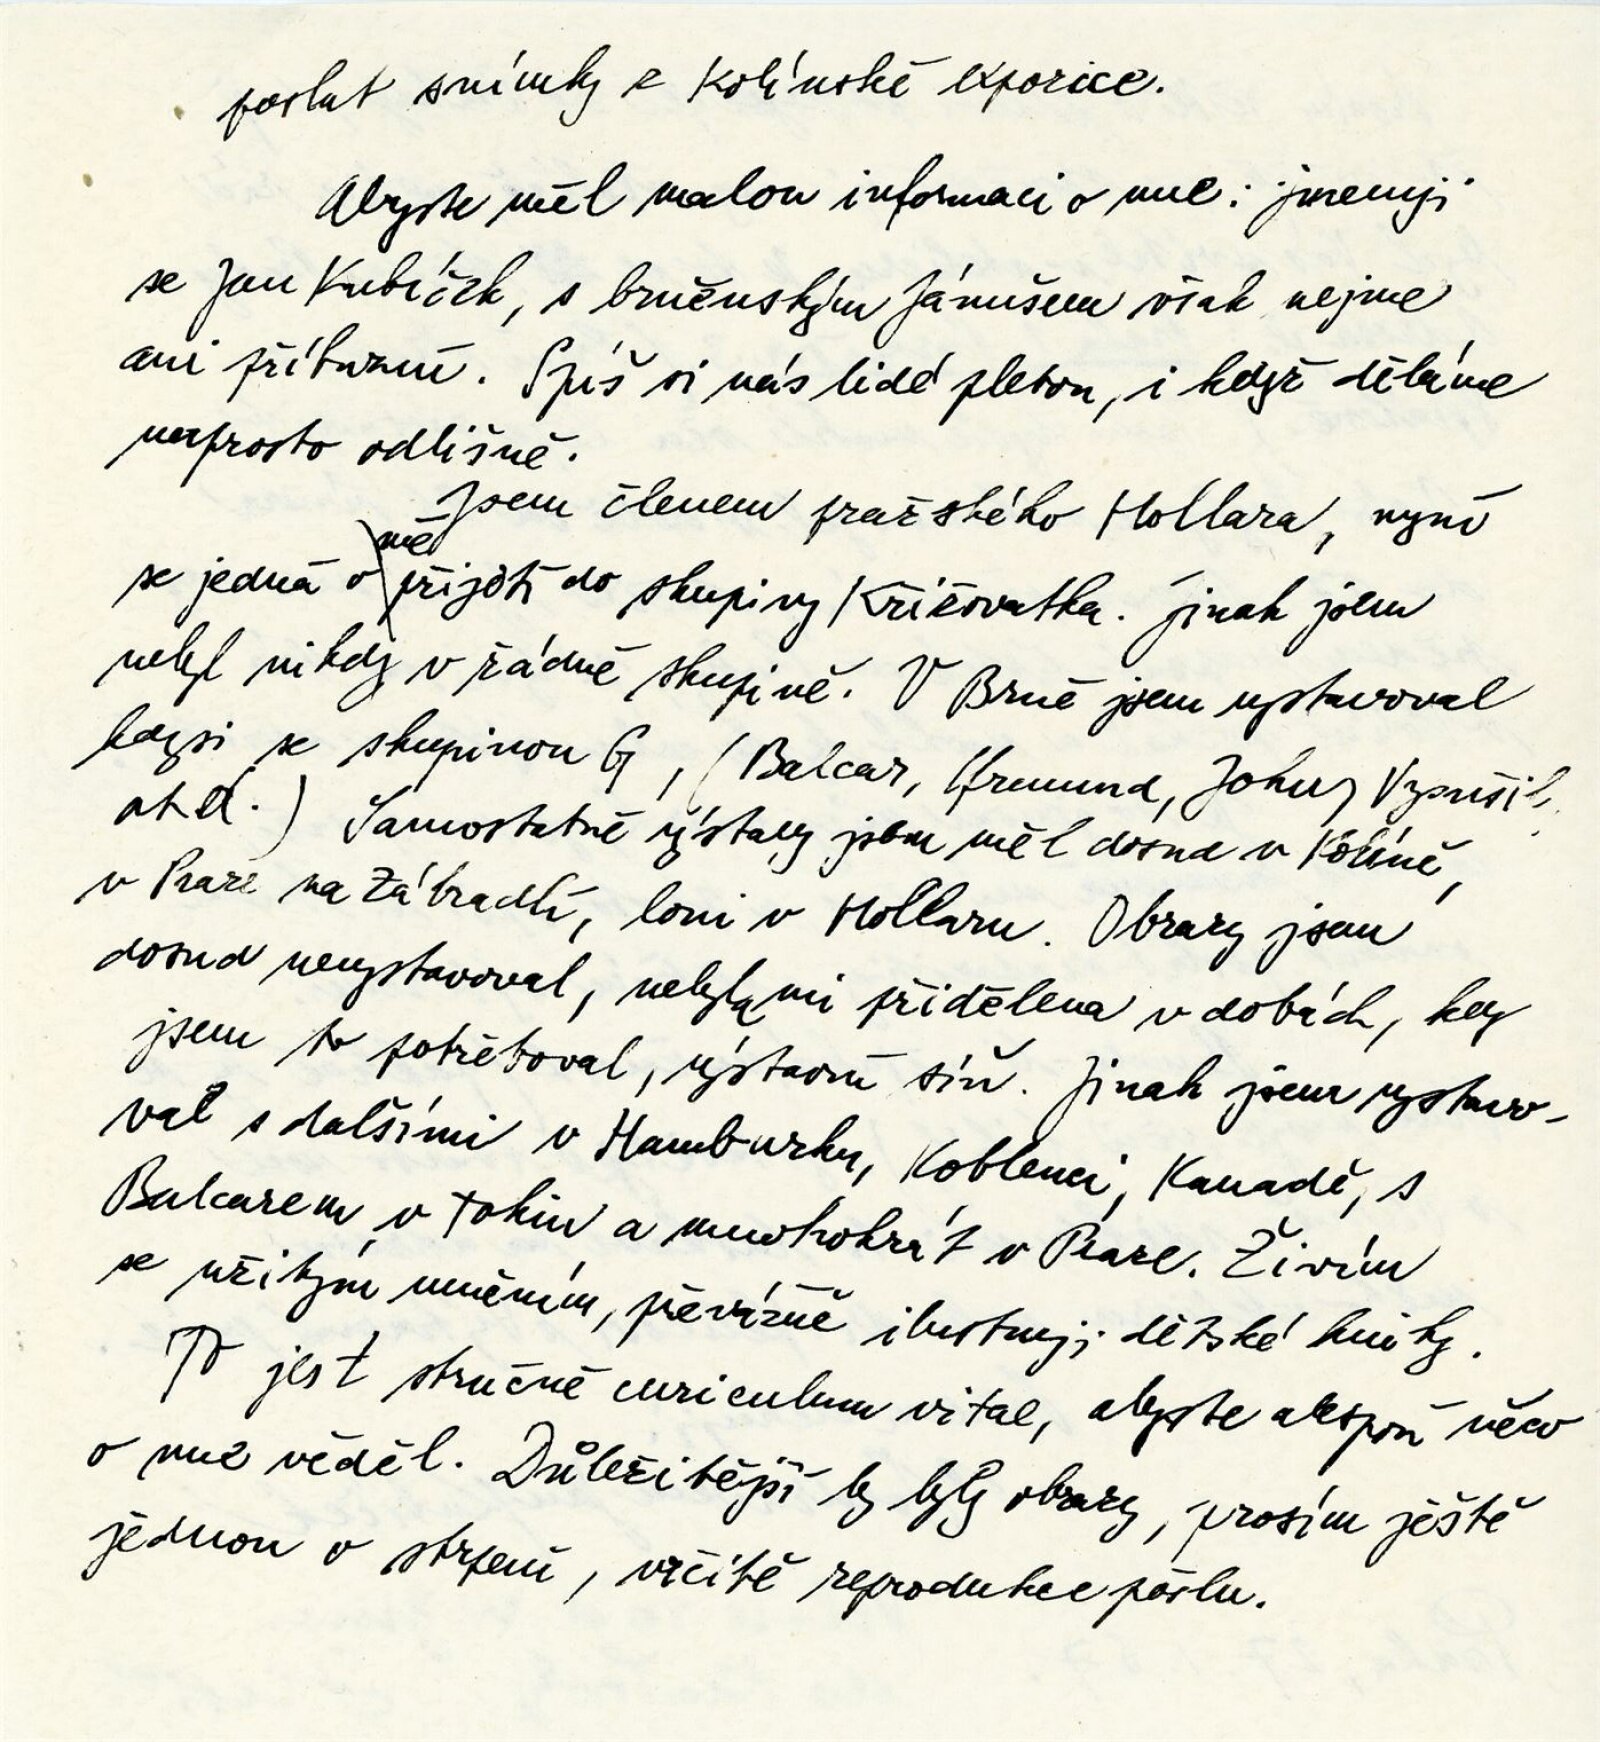 poslat snímky z Kolínské expozice.
Abyste měl malou informaci o mně: jmenuji
se Jan Kubíček, s brněnským Jánušem však nejme
ani příbuzní. Spíš si nás lidé pletou, i když děláme
naprosto odlišně.
Jsem členem pražského Hollara, nyní
mé
se jedná o přijetí do skupiny Křižovatka. Jinak jsem
nebyl nikdy v žádné skupině. V Brně jsem vystavoval
kdysi se skupinou G, (Balcar, Gremund, Johny Vyparšil,
atd.) Samostatné výstavy jsem měl dosud v Kolíně,
v Praze na Zábradlí, loni v Hollaru. Obrazy jsem
dosud nevystavoval, nebyla mi přidělena v dobách, kdy
jsem to potřeboval, výstavní síň. Jinak jsem vystavo-
val s dalšími v Hamburku, Koblenci, Kanadě, s
Balcarem v Tokiu a mnohokrát v Praze. Živím
se užitým uměním, převážně ilustruji dětské knihy.
To jest stručné curiculum vitae, abyste alespoň něco
o mně věděl. Důležitější by byly obrazy, prosím ještě
jednou o strpení, určitě reprodukce pošlu.